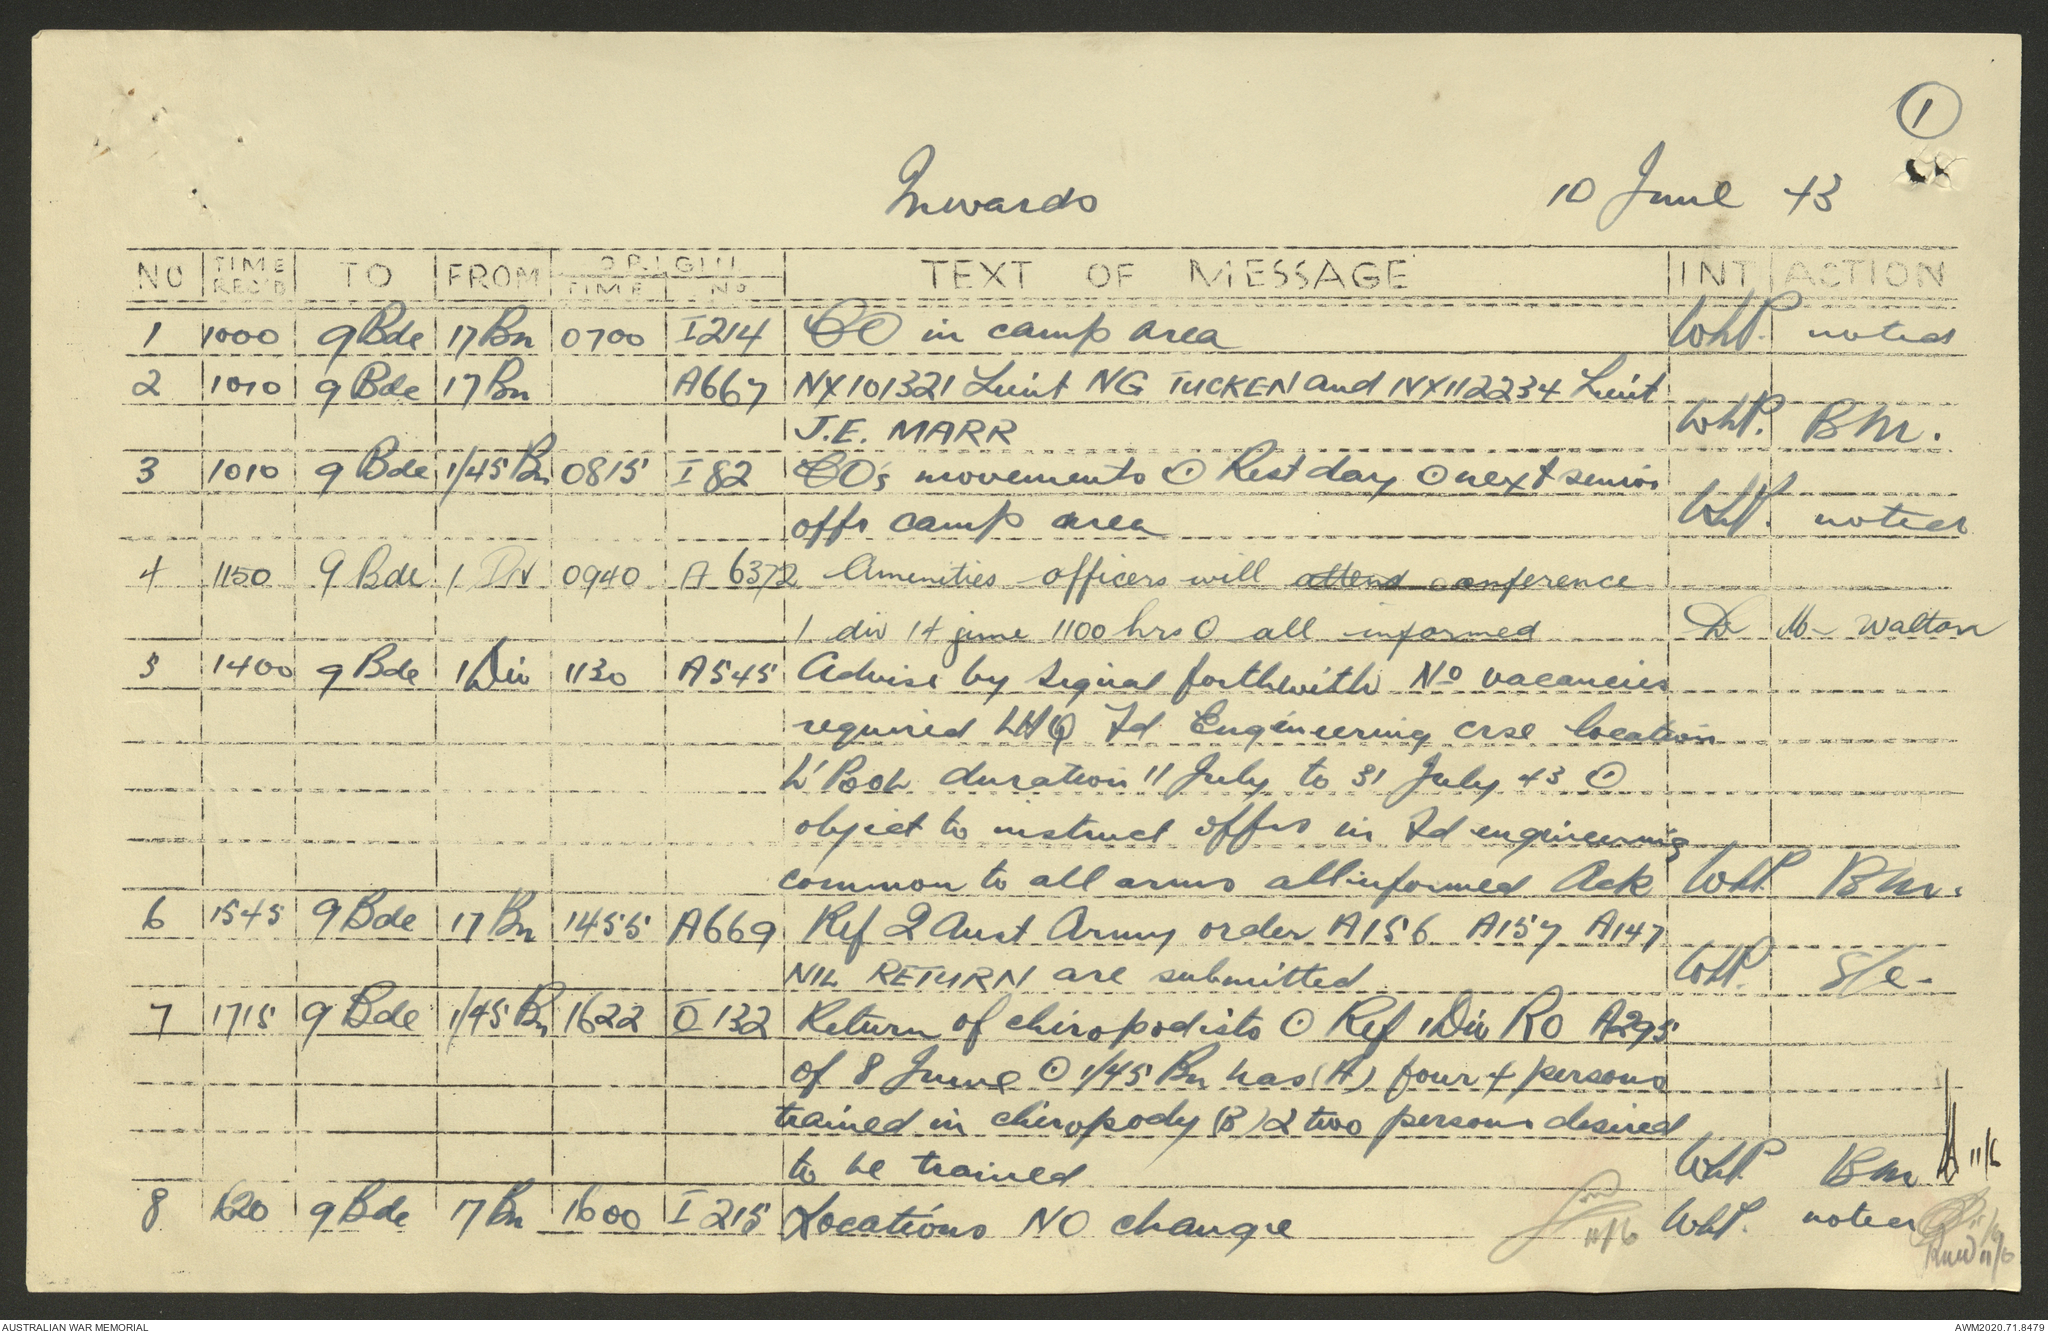 1
Inwards 10 June 43
NO TIME REC'D TO FROM ORIGIN TIME NO TEXT OF MESSAGE INT ACTION
1 1000 9 Bde 17 Bn 0700 I214 CO in camp area WhP. noted
2 1010 9 Bde 17 Bn A667 NX101321 Lieut NG TUCKEN and NX112234 Lieut
J.E. MARR WhP. BM.
3 1010 9 Bde 1/45 Bn 0815 I 82 CO's movements ⊙ Rest day ⊙ next senior
offr camp area WhP. noted
4 1150 9 Bde 1 Div 0940 A 6372 Amenities officers will attend conference
1 div 14 june 1100 hrs O all informed Mr Walton
5 1400 9 Bde 1 Div 1130 A545 Advise by signal forthwith No vacancies
required LHQ Fd. Engineering crse location
L'POOL duration 11 July to 31 July 43 ⊙
object to instruct offrs in Fd engineering
common to all arms all informed Ack WhP. BM.
6 1545 9 Bde 17 Bn 1455 A669 Ref 2 Aust Army order A156 A157 A147
NIL RETURN are submitted WhP. S/c-
7 1715 9 Bde 1/45 Bn 1622 O 132 Return of chiropodists ⊙ Ref 1 Div RO A295
of 8 June ⊙ 1/45 Bn has (A) four 4 persons
trained in chiropody (B) 2 two persons desired
to be trained WhP. BM 11/6
8 1620 9 Bde 17 Bn 1600 I 215 Locations NO change 11/6 WhP. noted
11/6
AUSTRALIAN WAR MEMORIAL AWM2020.71.8479